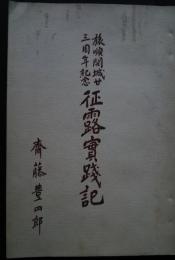 旅順開城廿
三周年紀念
征露實踐記
齋藤豊四郎